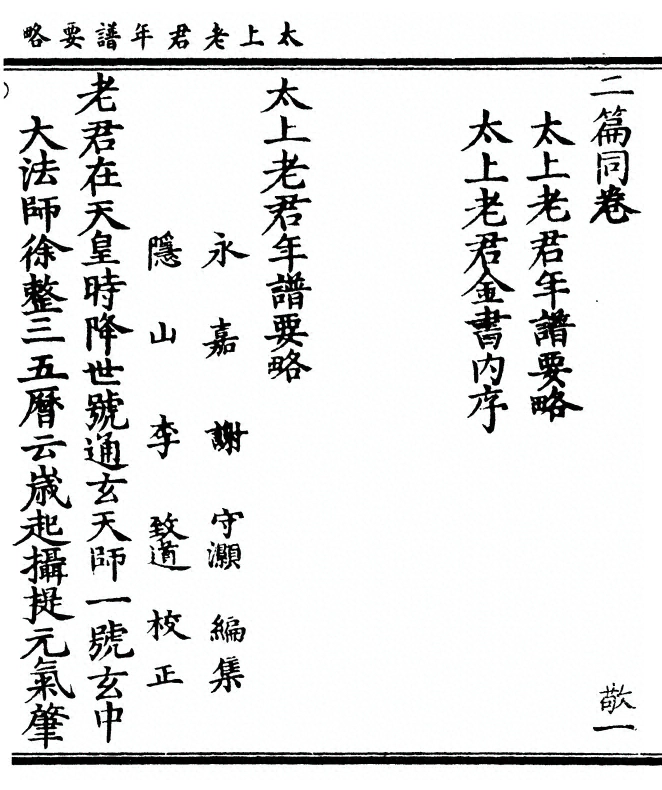 太上老君年譜要略
二篇同卷
敬一
太上老君年譜要略
太上老君金書内序
太上老君年譜要略
永嘉謝守灝編集
隱山李致道校正
老君在天皇時降世號通玄天師一號玄中
大法師徐整三五曆云歲起攝提元氣肇